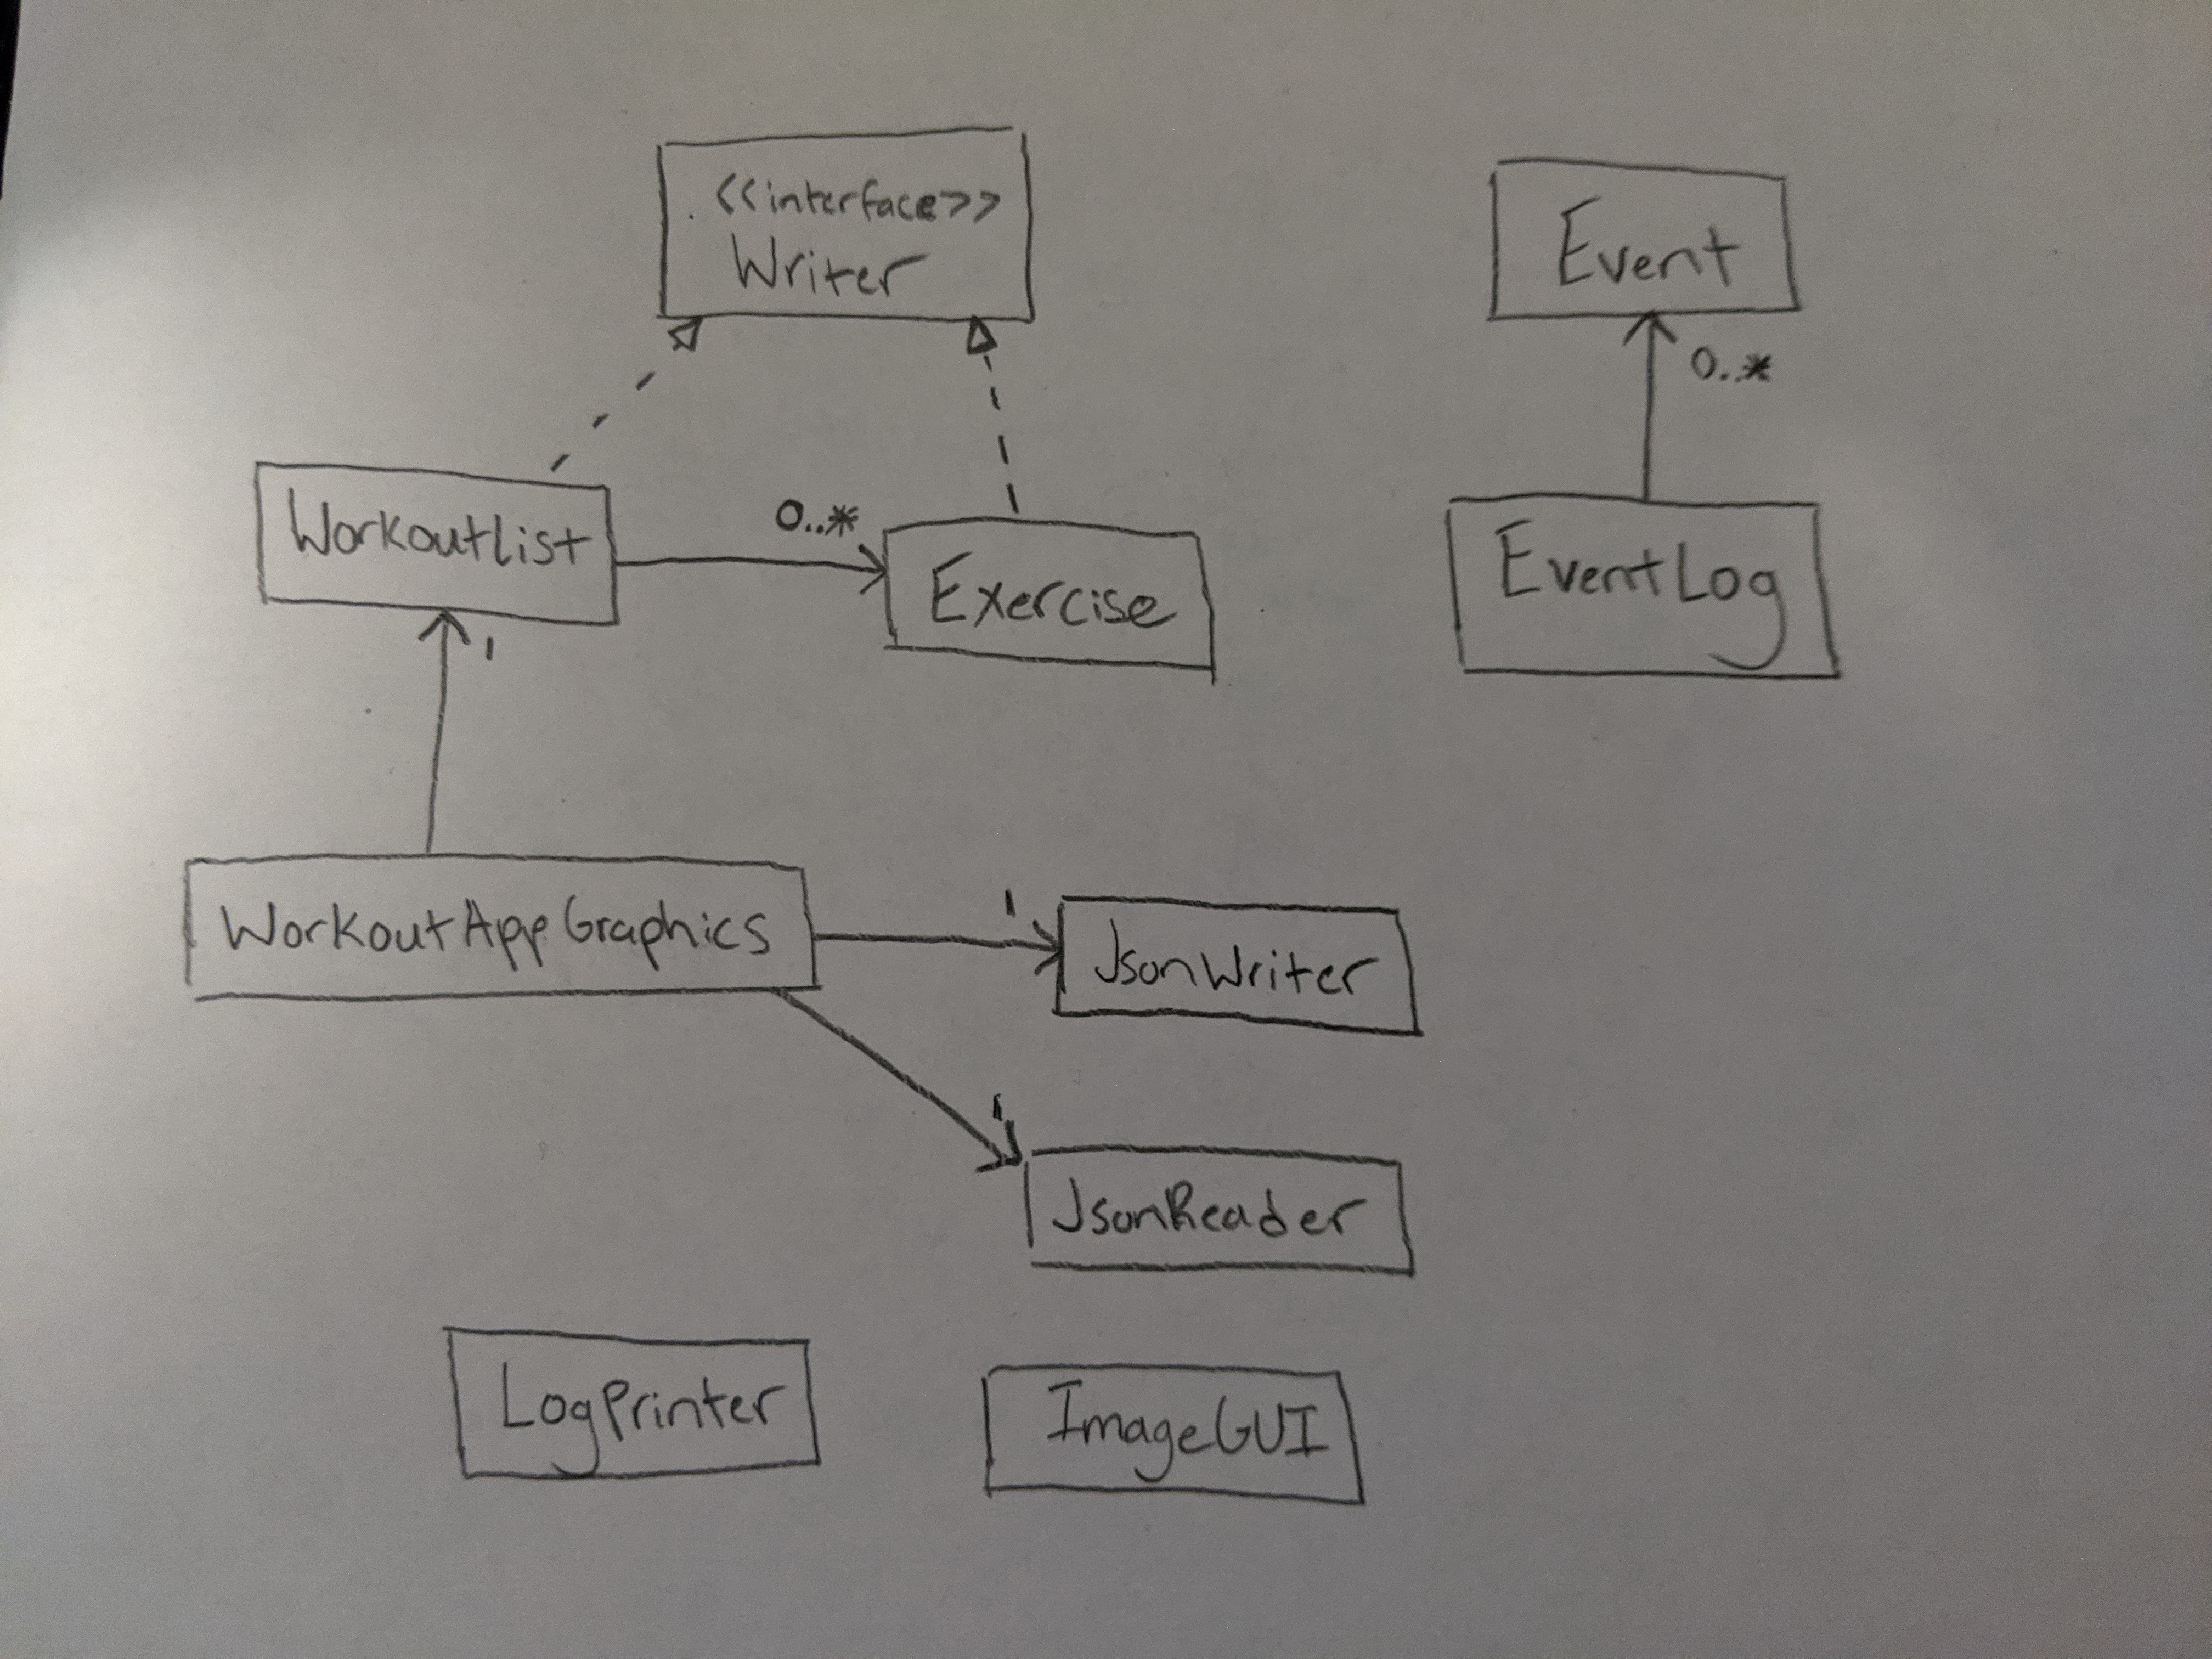 <<interface>>
Writer
Event
0..*
WorkoutList
0..*
Exercise
EventLog
1
WorkoutAppGraphics
1
JsonWriter
1
JsonReader
LogPrinter
ImageGUI